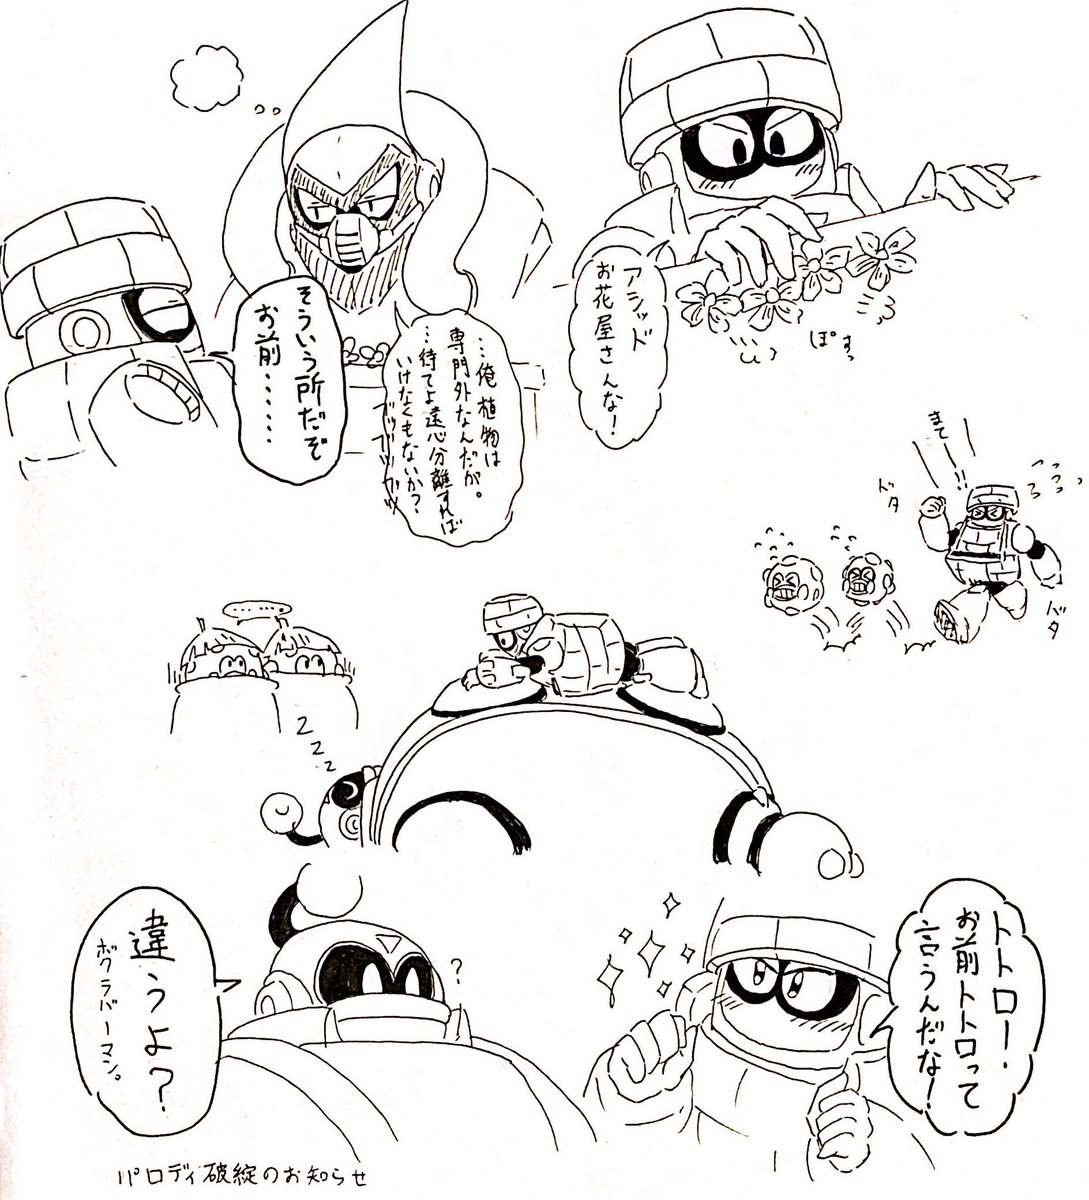 アシッド
お花屋さんな!
ぽすっ
…俺植物は
専門外なんだが。
…待てよ遠心分離すれば
いけなくもないか?
ブツブツブツブツ
そういう所だぞ
お前……
まて〜!!
ドタ
バタ
……
Z
Z
Z
トトロー・
お前トトロって
言うんだな!
?
違うよ?
ボクラバーマン。
パロディ破綻のお知らせ